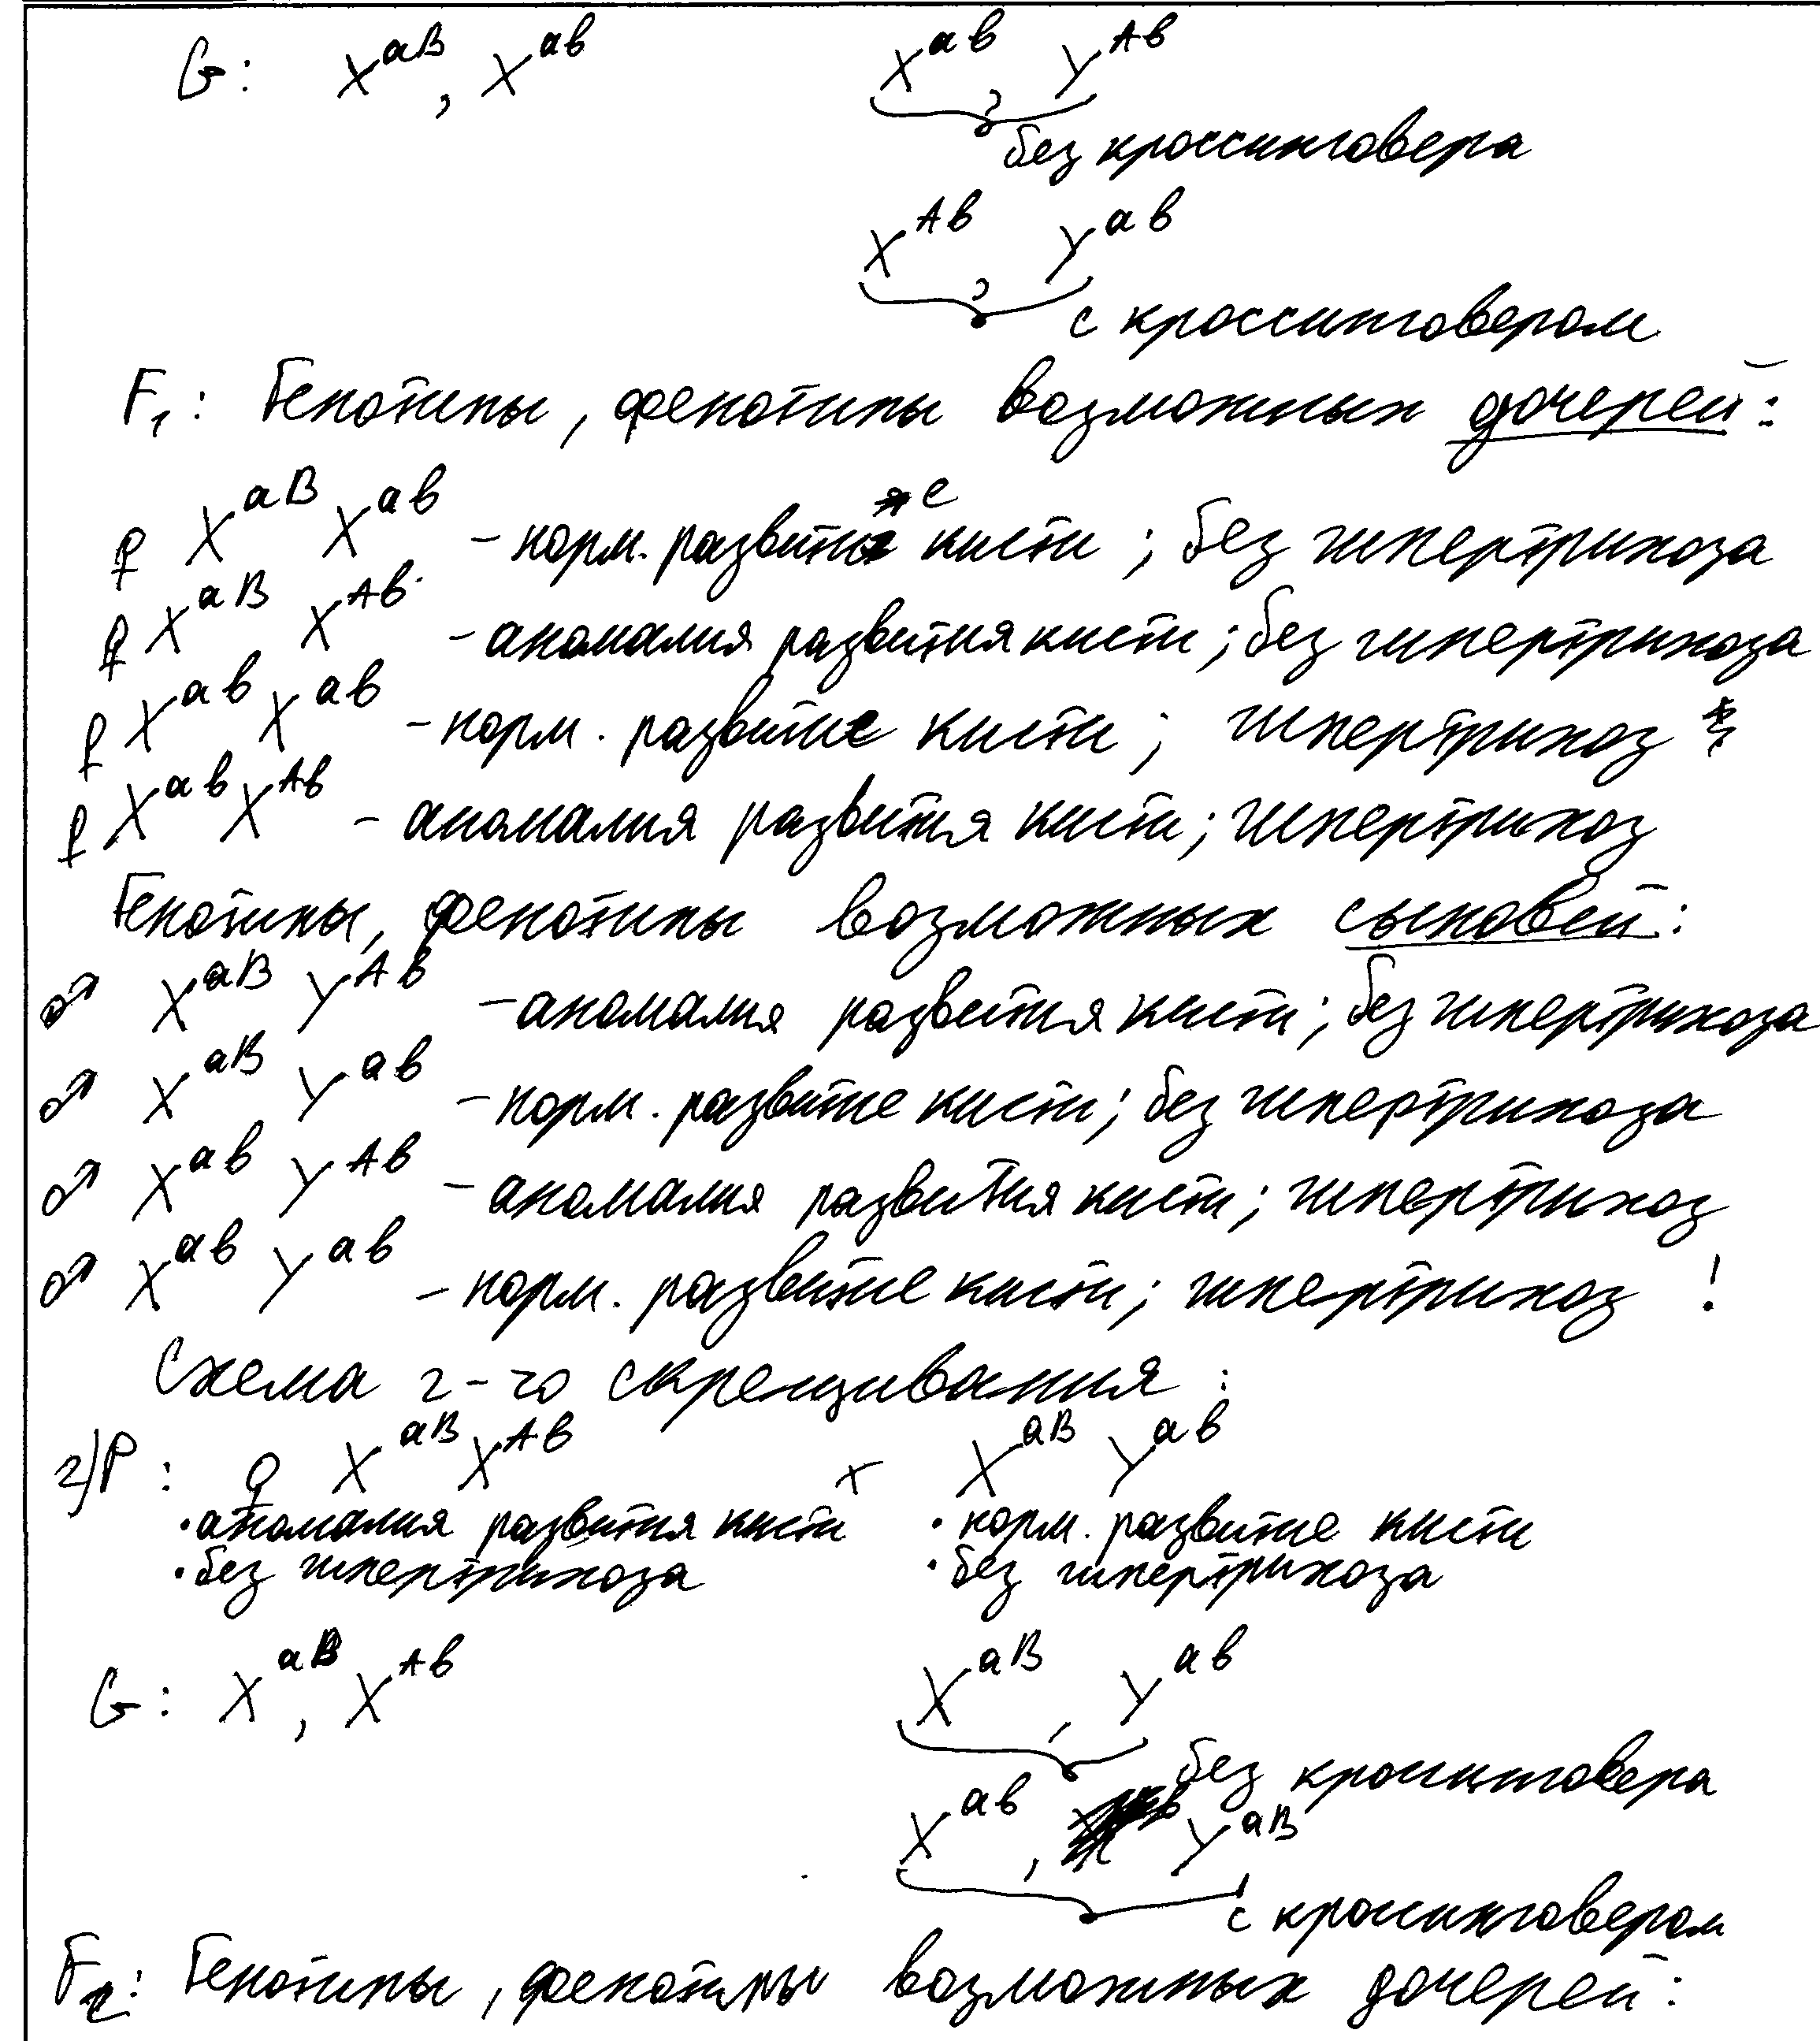 G: X^aB, X^ab X^ab, Y^Ab
без кроссинговера
X^Ab, Y^ab
с кроссинговером
F₁: Генотипы, фенотипы возможных дочерей:
♀ X^aB X^ab – норм. развитие кисти; без гипертрихоза
♀ X^aB X^Ab – аномалия развития кисти; без гипертрихоза
♀ X^ab X^ab – норм. развитие кисти; гипертрихоз
♀ X^ab X^Ab – аномалия развития кисти; гипертрихоз
Генотипы, фенотипы возможных сыновей:
♂ X^aB Y^Ab – аномалия развития кисти; без гипертрихоза
♂ X^aB Y^ab – норм. развитие кисти; без гипертрихоза
♂ X^ab Y^Ab – аномалия развития кисти; гипертрихоз
♂ X^ab Y^ab – норм. развитие кисти; гипертрихоз !
Схема 2-го скрещивания:
2) P: ♀ X^aB X^Ab x X^aB Y^ab
• аномалия развития кисти • норм. развитие кисти
• без гипертрихоза • без гипертрихоза
G: X^aB, X^Ab X^aB, Y^ab
без кроссинговера
X^ab, Y^aB
с кроссинговером
F₂: Генотипы, фенотипы возможных дочерей: